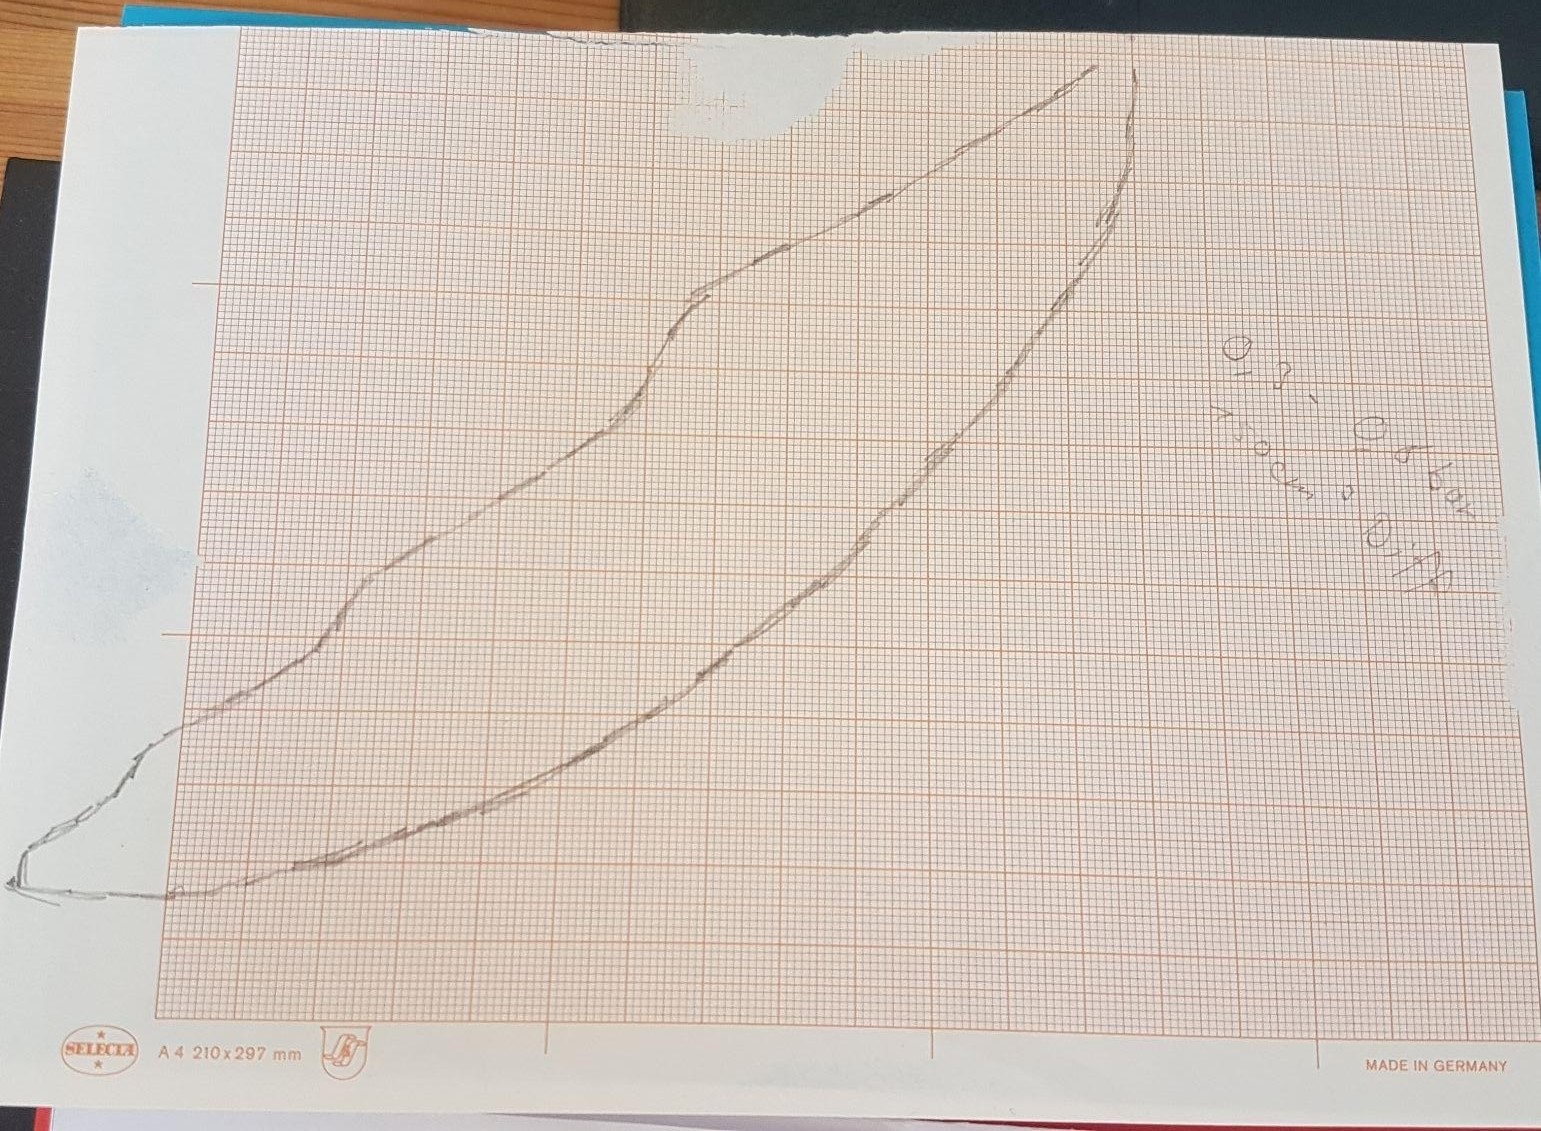 0,3 - 0,5 bar
> 50 cm Diff
SELECTA
A 4 210 x 297 mm
MADE IN GERMANY